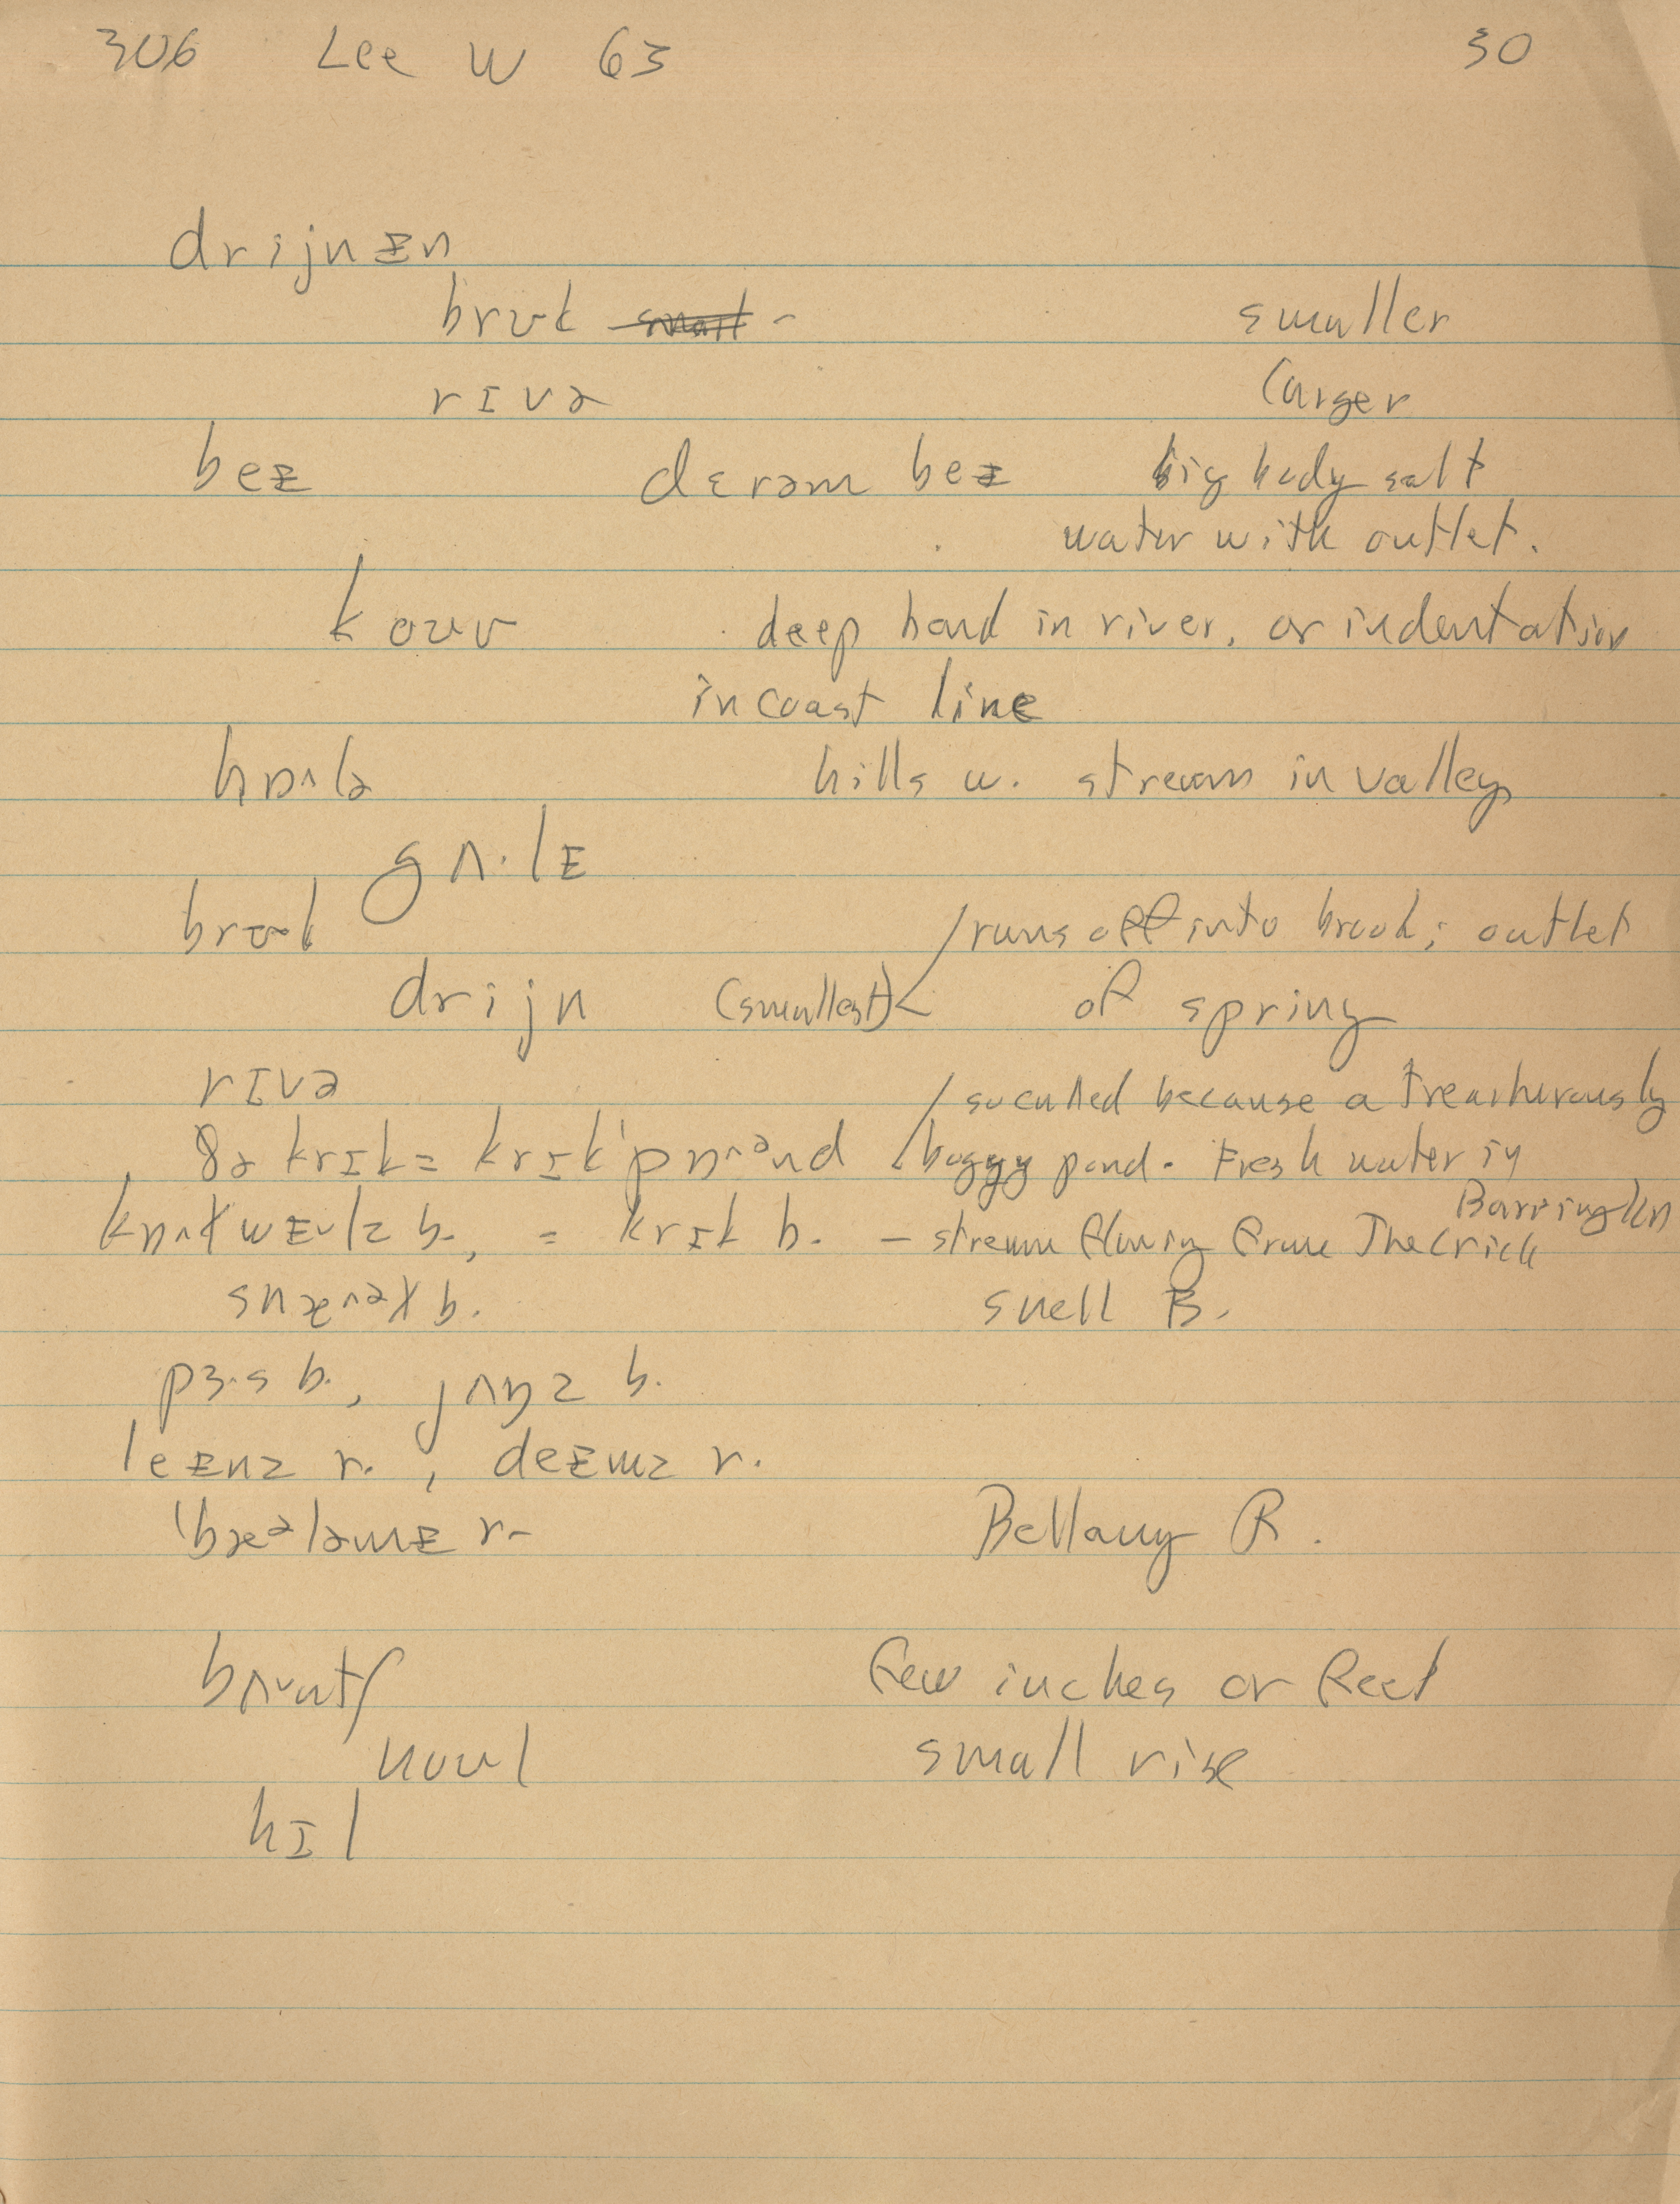 306 Lee W 63 30
drijnɪn
brʊk small - smaller
rɪvə larger
beɪ dɛrəm beɪ big body salt
water with outlet.
koʊv deep bend in river, or indentation
in coast line
hɒ^lə hills w. stream in valley
gʌ·lɪ
brʊk /runs off into brook; outlet
drijn (smallest)< of spring
rɪvə /so called because a treacherously
ðə krɪk = krɪk'pɒ^ənd boggy pond. Fresh water in
Barrington
b., = krɪk b. - stream flowing from The Crick
b. Snell B.
pɜ·s b., jʌŋz b.
leɪnz r., deɪmz r.
'bæᵊləmɪ r. Bellamy R.
few inches or feet
noʊl small rise
hɪl